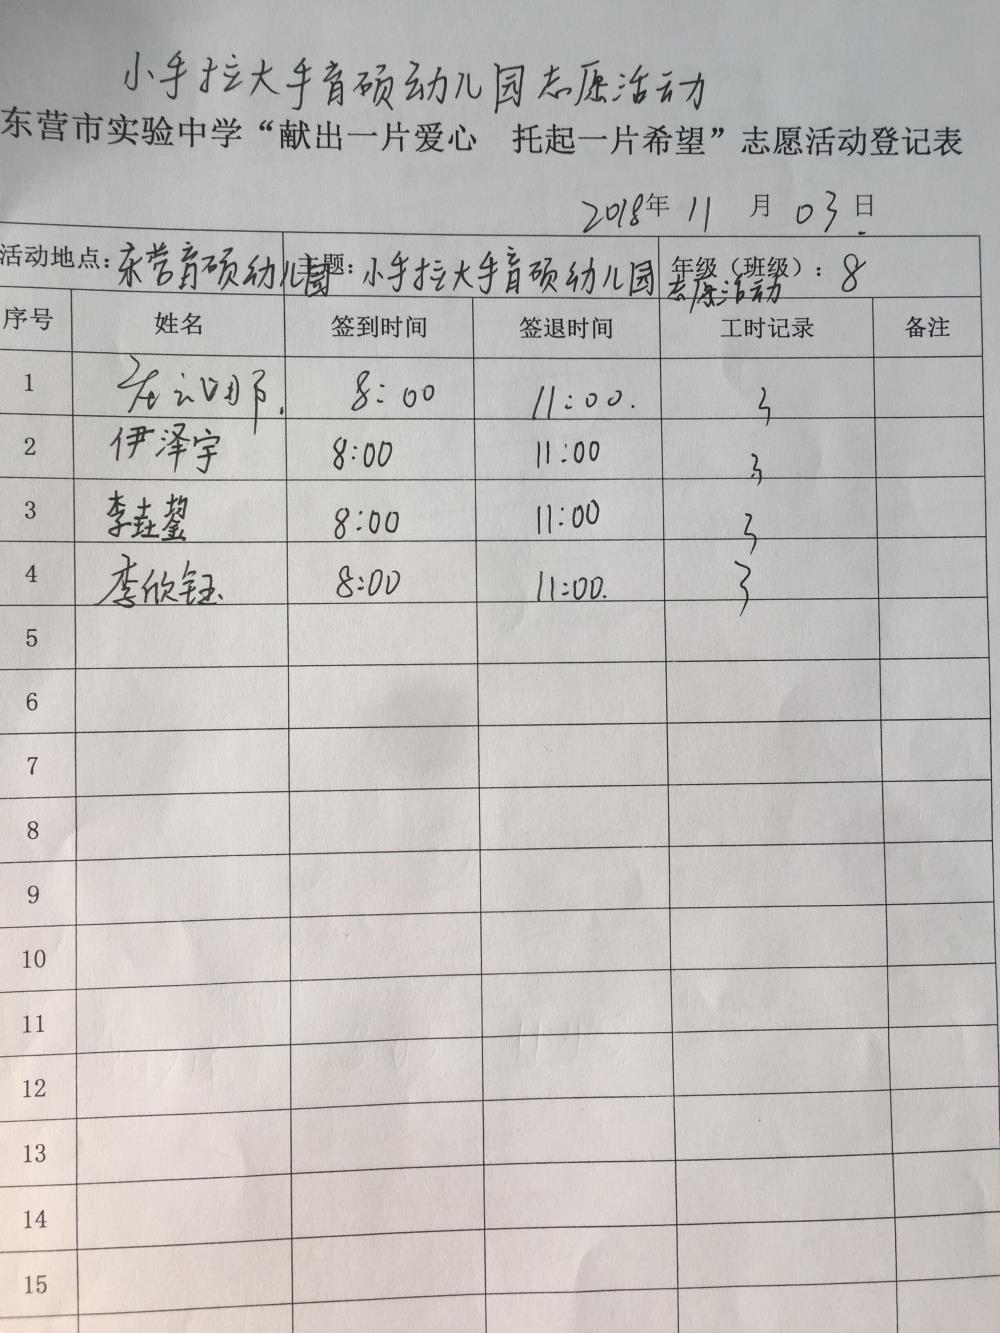 小手拉大手育硕幼儿园志愿活动
东营市实验中学“献出一片爱心 托起一片希望”志愿活动登记表
2018年 11 月 03 日
活动地点：东营育硕幼儿园 主题：小手拉大手育硕幼儿园志愿活动 年级（班级）：8
序号 姓名 签到时间 签退时间 工时记录 备注
1 8:00 11:00. 3
2 伊泽宇 8:00 11:00 3
3 李垚鋆 8:00 11:00 3
4 李欣钰 8:00 11:00. 3
5
6
7
8
9
10
11
12
13
14
15